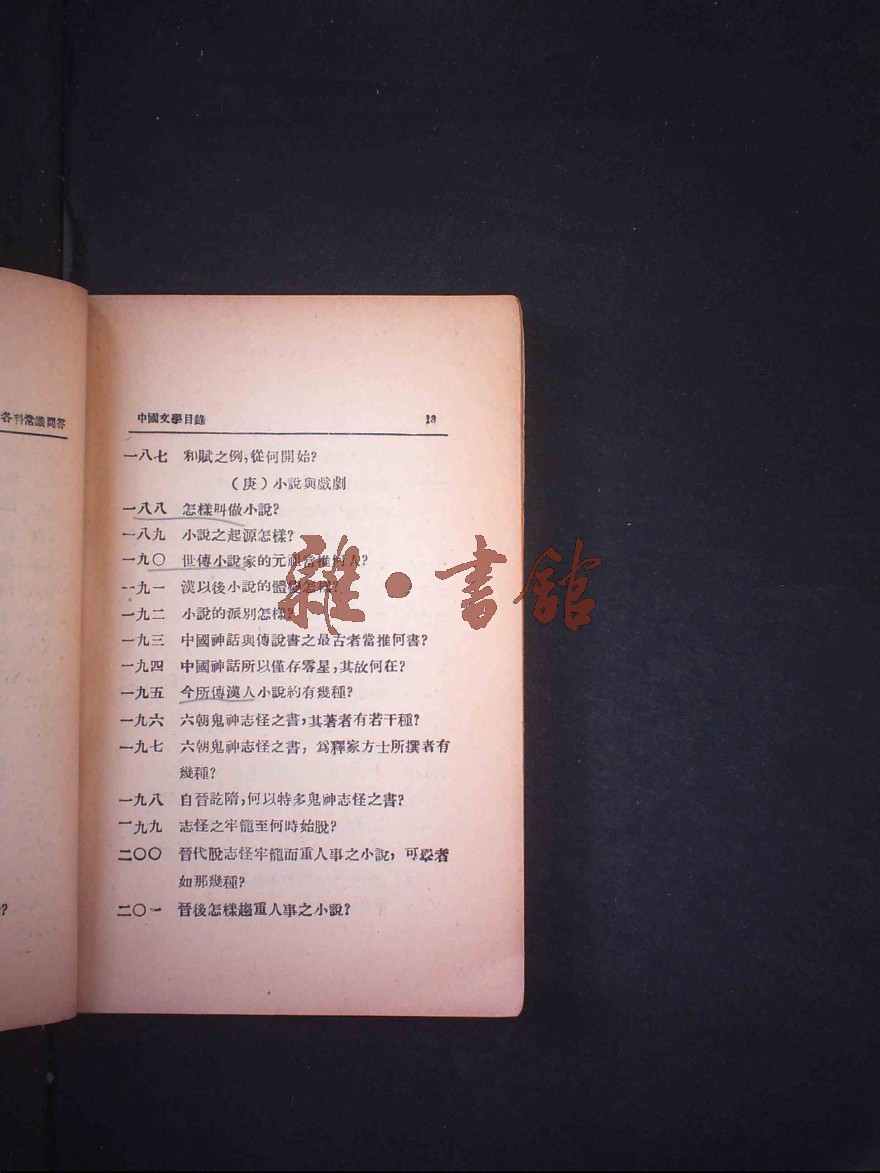 各科常識問答
中國文學目錄 13
一八七 和賦之例，從何開始？
（庚）小說與戲劇
一八八 怎樣叫做小說？
一八九 小說之起源怎樣？
一九〇 世傳小說家的元祖當推何人？
一九一 漢以後小說的體變怎樣？
一九二 小說的派別怎樣？
一九三 中國神話與傳說書之最古者當推何書？
一九四 中國神話所以僅存零星，其故何在？
一九五 今所傳漢人小說約有幾種？
一九六 六朝鬼神志怪之書，其著者有若干種？
一九七 六朝鬼神志怪之書，爲釋家方士所撰者有
幾種？
一九八 自晉訖隋，何以特多鬼神志怪之書？
一九九 志怪之牢籠至何時始脫？
二〇〇 晉代脫志怪牢籠而重人事之小說，可舉者
如那幾種？
二〇一 晉後怎樣趨重人事之小說？
？
雜·書館